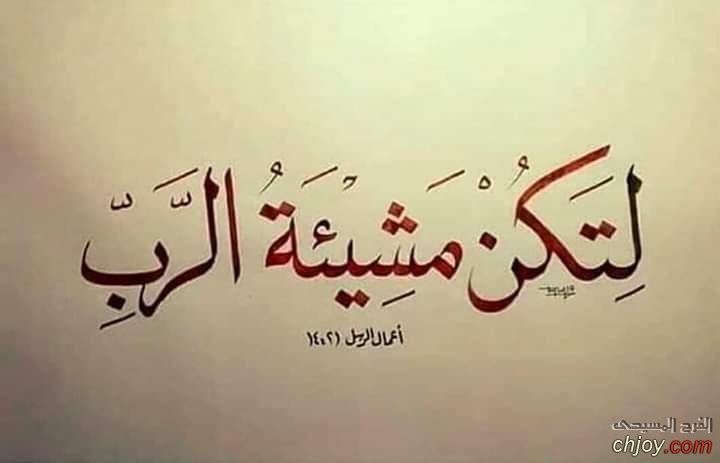 لِتَكُنْ مَشِيْئَةُ الرَّبِّ
أعمال الرسل ٢١:١٤
الفرح المسيحى
chjoy.com